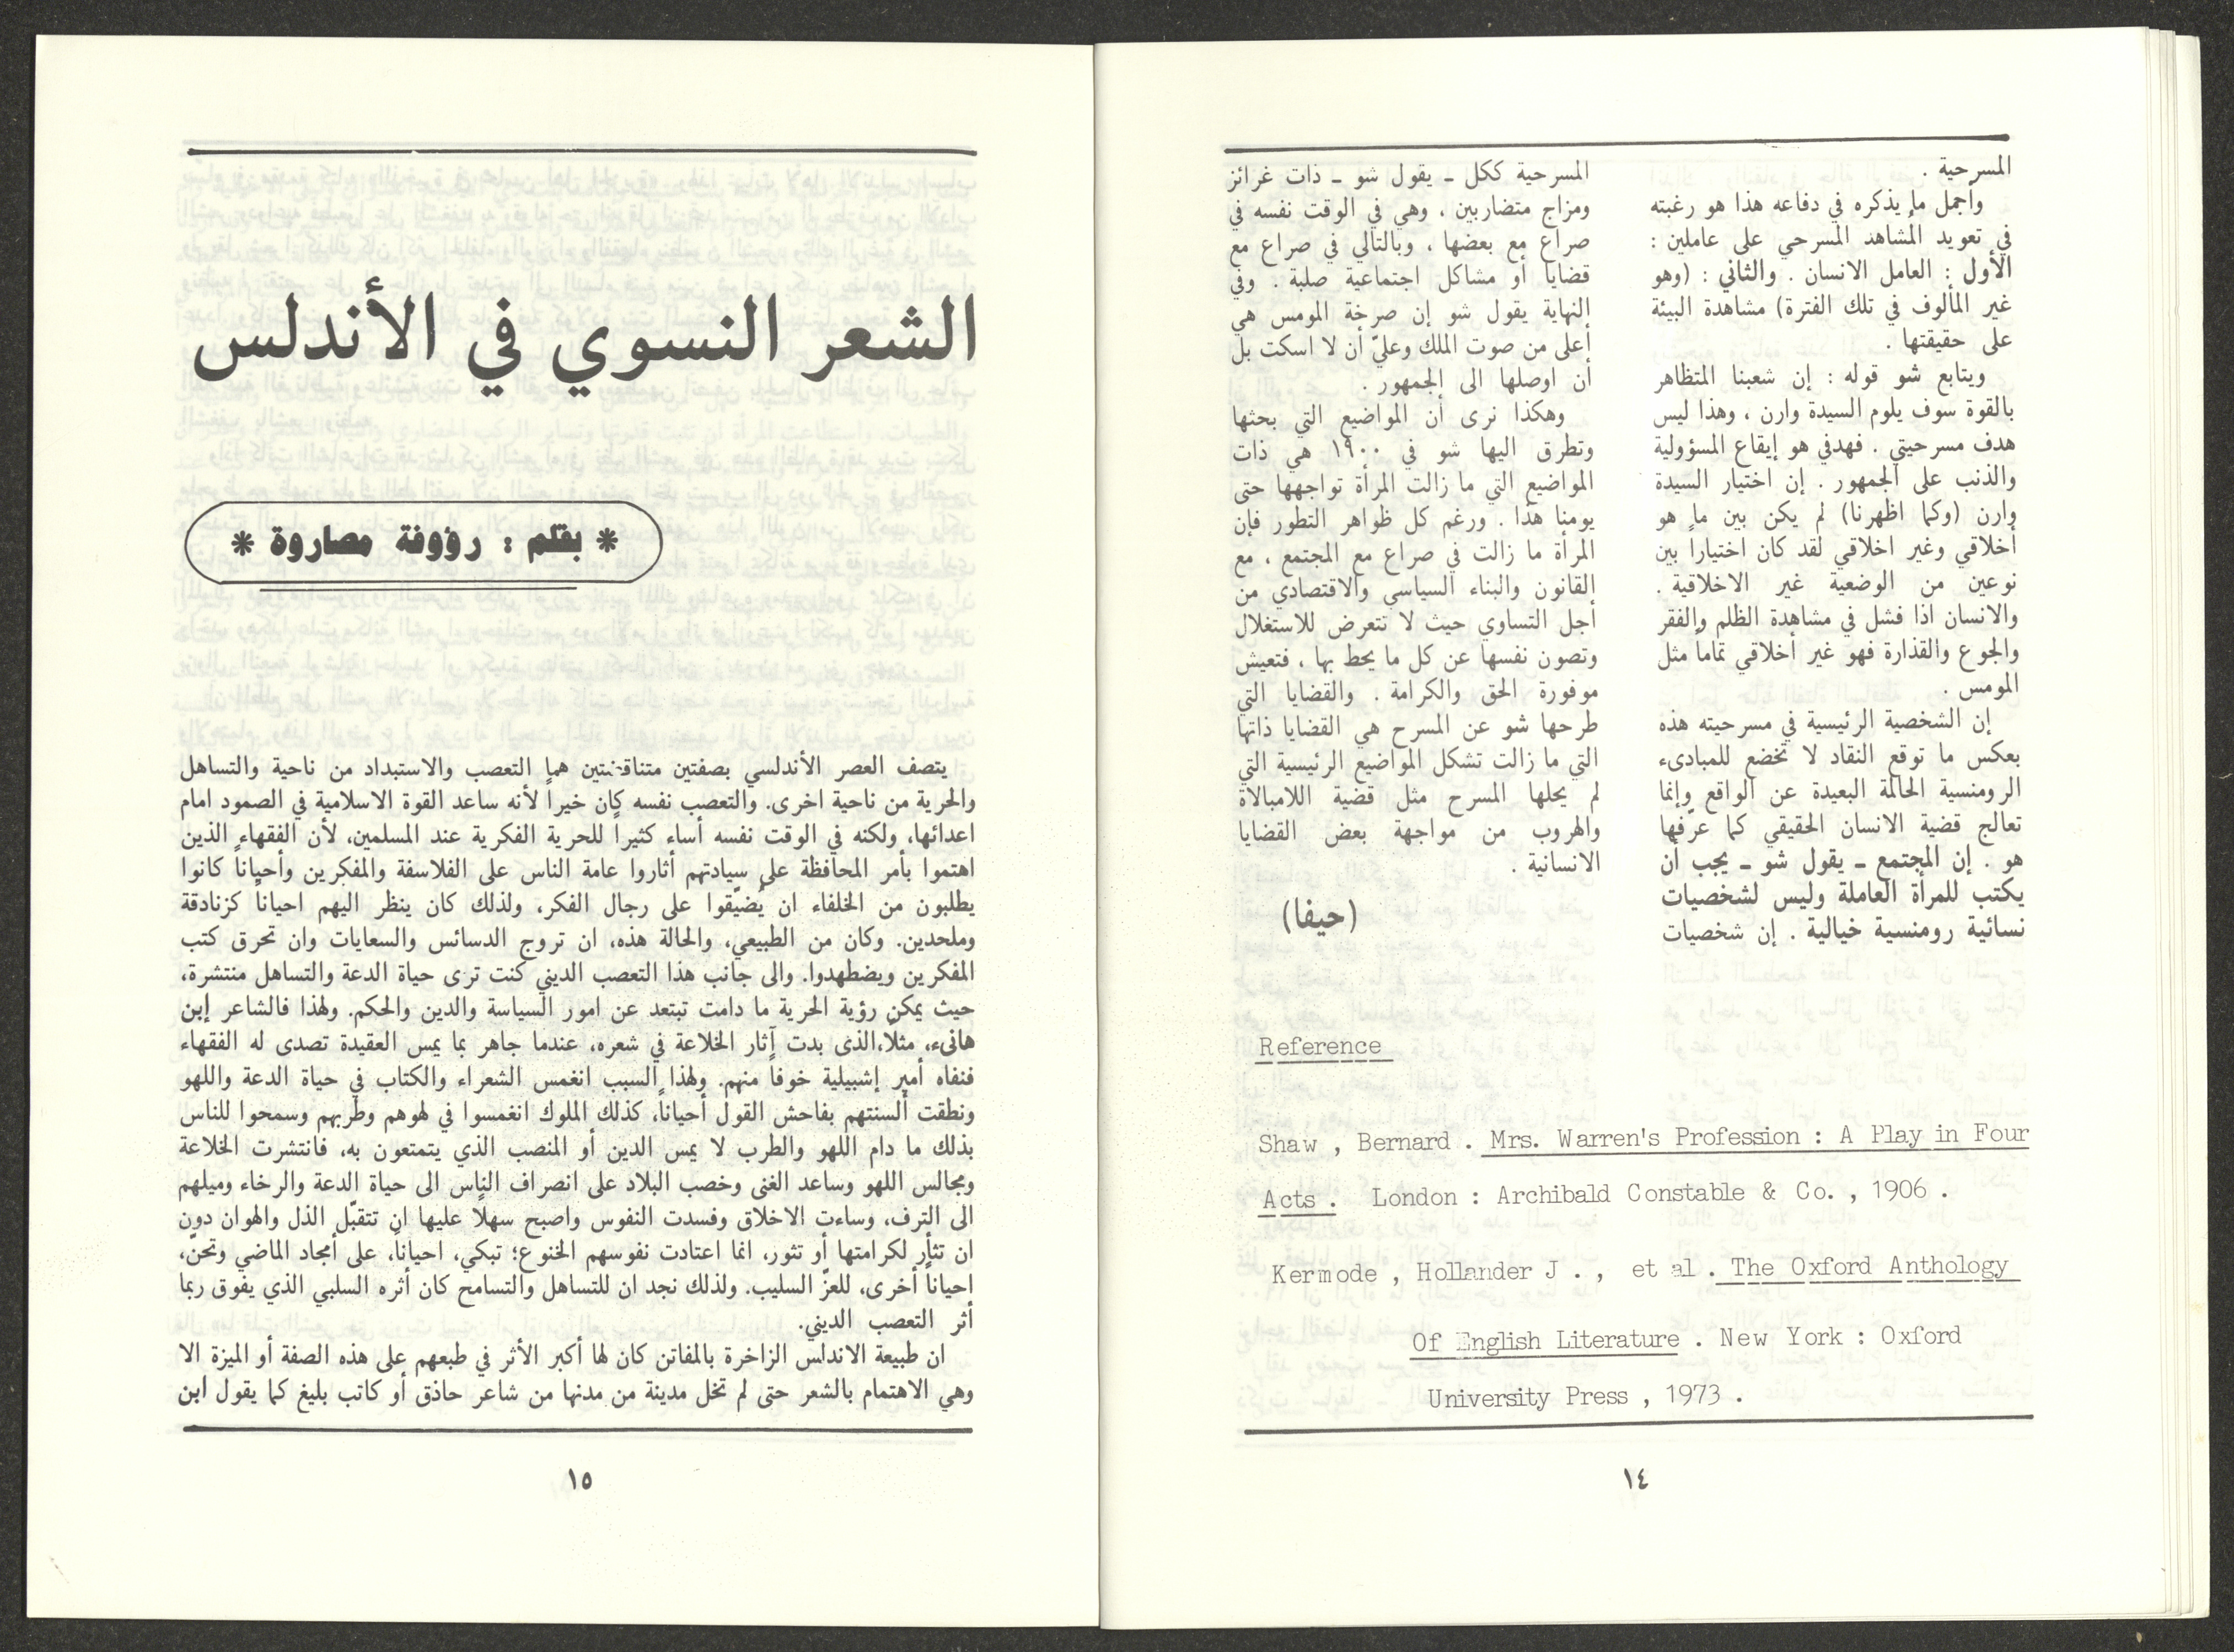 المسرحية .
وأجمل ما يذكره في دفاعه هذا هو رغبته
في تعويد المُشاهد المسرحي على عاملين :
الأول : العامل الانسان . والثاني : (وهو
غير المألوف في تلك الفترة) مشاهدة البيئة
على حقيقتها .
ويتابع شو قوله : إن شعبنا المتظاهر
بالقوة سوف يلوم السيدة وارن ، وهذا ليس
هدف مسرحيتي . فهدفي هو إيقاع المسؤولية
والذنب على الجمهور . إن اختيار السيدة
وارن (وكما اظهرنا) لم يكن بين ما هو
أخلاقي وغير اخلاقي لقد كان اختياراً بين
نوعين من الوضعية غير الاخلاقية .
والانسان اذا فشل في مشاهدة الظلم والفقر
والجوع والقذارة فهو غير أخلاقي تماماً مثل
المومس .
إن الشخصية الرئيسية في مسرحيته هذه
بعكس ما توقع النقاد لا تخضع للمبادىء
الرومنسية الحالمة البعيدة عن الواقع وإنما
تعالج قضية الانسان الحقيقي كما عرّفها
هو . إن المجتمع ـ يقول شو ـ يجب أن
يكتب للمرأة العاملة وليس لشخصيات
نسائية رومنسية خيالية . إن شخصيات
المسرحية ككل ـ يقول شو ـ ذات غرائز
ومزاج متضاربين ، وهي في الوقت نفسه في
صراع مع بعضها ، وبالتالي في صراع مع
قضايا أو مشاكل اجتماعية صلبة . وفي
النهاية يقول شو إن صرخة المومس هي
أعلى من صوت الملك وعليّ أن لا اسكت بل
أن اوصلها الى الجمهور .
وهكذا نرى أن المواضيع التي بحثها
وتطرق اليها شو في ١٩٠٠ هي ذات
المواضيع التي ما زالت المرأة تواجهها حتى
يومنا هذا . ورغم كل ظواهر التطور فإن
المرأة ما زالت في صراع مع المجتمع ، مع
القانون والبناء السياسي والاقتصادي من
أجل التساوي حيث لا تتعرض للاستغلال
وتصون نفسها عن كل ما يحط بها ، فتعيش
موفورة الحق والكرامة . والقضايا التي
طرحها شو عن المسرح هي القضايا ذاتها
التي ما زالت تشكل المواضيع الرئيسية التي
لم يحلها المسرح مثل قضية اللامبالاه
والهروب من مواجهة بعض القضايا
الانسانية .
(حيفا)
Reference
Shaw , Bernard . Mrs. Warren's Profession : A Play in Four
Acts . London : Archibald Constable & Co. , 1906 .
Kermode , Hollander J . , et al . The Oxford Anthology
Of English Literature . New York : Oxford
University Press , 1973 .
١٤
الشعر النسوي في الأندلس
* بقلم : رؤوفة مصاروة *
يتصف العصر الأندلسي بصفتين متناقضتين هما التعصب والاستبداد من ناحية والتساهل
والحرية من ناحية اخرى. والتعصب نفسه كان خيراً لأنه ساعد القوة الاسلامية في الصمود امام
اعدائها، ولكنه في الوقت نفسه أساء كثيراً للحرية الفكرية عند المسلمين، لأن الفقهاء الذين
اهتموا بأمر المحافظة على سيادتهم أثاروا عامة الناس على الفلاسفة والمفكرين وأحياناً كانوا
يطلبون من الخلفاء ان يُضيّقوا على رجال الفكر، ولذلك كان ينظر اليهم احياناً كزنادقة
وملحدين. وكان من الطبيعي، والحالة هذه، ان تروج الدسائس والسعايات وان تحرق كتب
المفكرين ويضطهدوا. والى جانب هذا التعصب الديني كنت ترى حياة الدعة والتساهل منتشرة،
حيث يمكن رؤية الحرية ما دامت تبتعد عن امور السياسة والدين والحكم. ولهذا فالشاعر إبن
هانىء، مثلًا،الذى بدت آثار الخلاعة في شعره، عندما جاهر بما يمس العقيدة تصدى له الفقهاء
فنفاه أمير إشبيلية خوفاً منهم. ولهذا السبب انغمس الشعراء والكتاب في حياة الدعة واللهو
ونطقت ألسنتهم بفاحش القول أحياناً، كذلك الملوك انغمسوا في لهوهم وطربهم وسمحوا للناس
بذلك ما دام اللهو والطرب لا يمس الدين أو المنصب الذي يتمتعون به، فانتشرت الخلاعة
ومجالس اللهو وساعد الغنى وخصب البلاد على انصراف الناس الى حياة الدعة والرخاء وميلهم
الى الترف، وساءت الاخلاق وفسدت النفوس واصبح سهلًا عليها ان تتقبّل الذل والهوان دون
ان تثأر لكرامتها أو تثور، انما اعتادت نفوسهم الخنوع؛ تبكي، احياناً، على أمجاد الماضي وتحنّ،
احياناً أخرى، للعزّ السليب. ولذلك نجد ان للتساهل والتسامح كان أثره السلبي الذي يفوق ربما
أثر التعصب الديني.
ان طبيعة الاندلس الزاخرة بالمفاتن كان لها أكبر الأثر في طبعهم على هذه الصفة أو الميزة الا
وهي الاهتمام بالشعر حتى لم تخل مدينة من مدنها من شاعر حاذق أو كاتب بليغ كما يقول ابن
١٥